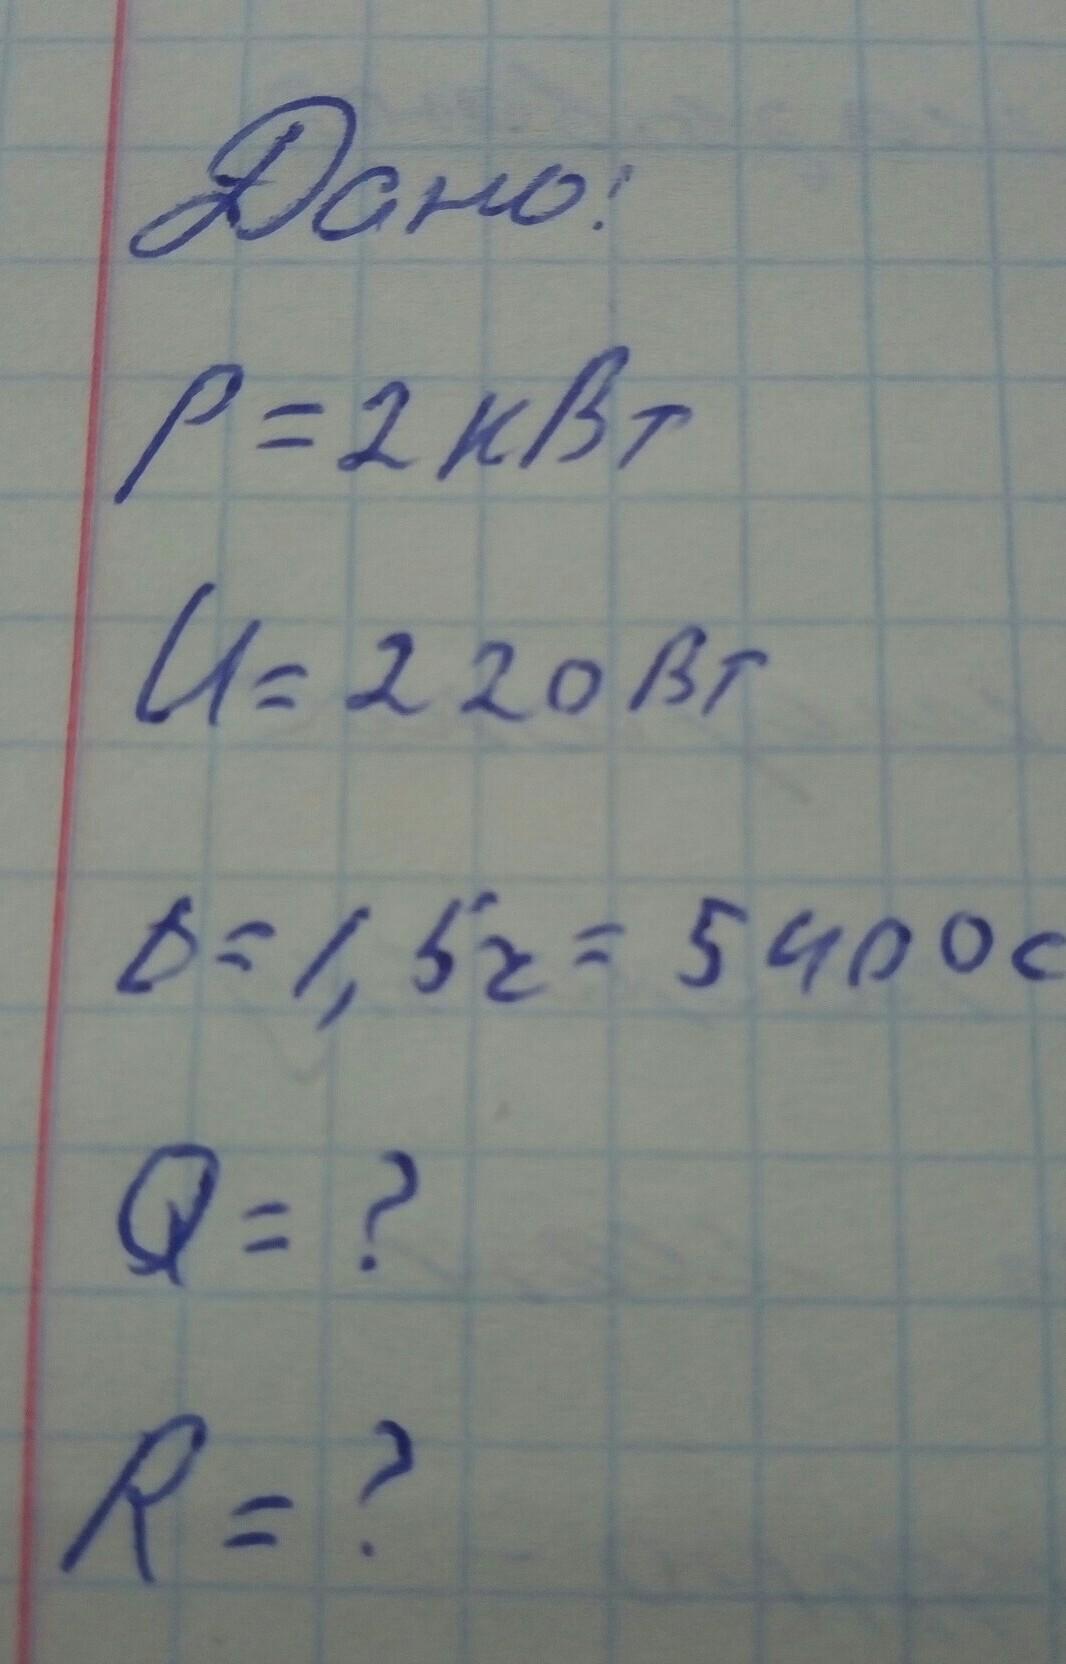 Дано:
P = 2 кВт
U = 220 Вт
t = 1,5ч = 5400с
Q = ?
R = ?